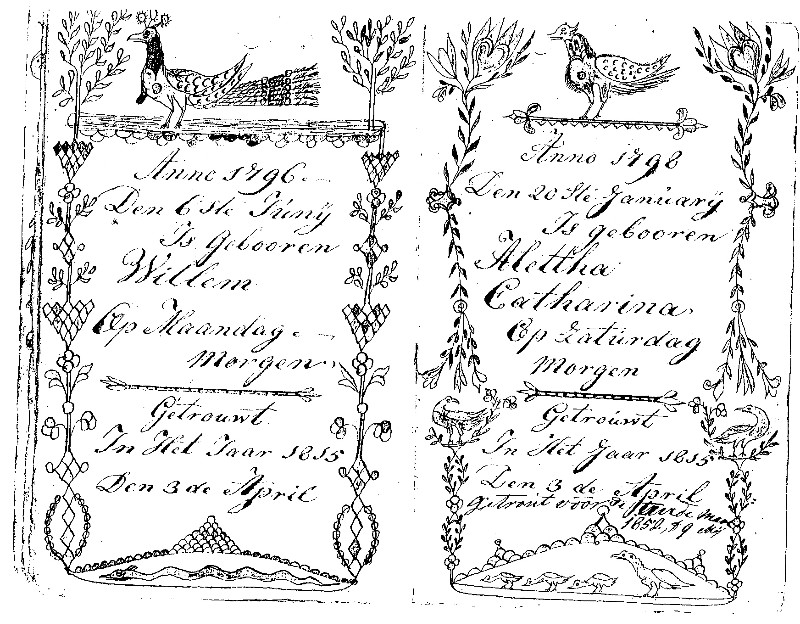 Anno 1796
Den 6 Ste Juny
Is Gebooren
Willem
Op Maandag
Morgen
Getrouwt
In Het Jaar 1815
Den 3 de April
Anno 1798
Den 20 Ste January
Is gebooren
Alettha
Catharina
Op Zaturdag
Morgen
Getrouwt
In Het Jaar 1815
Den 3 de April
getrout voor de
1852,